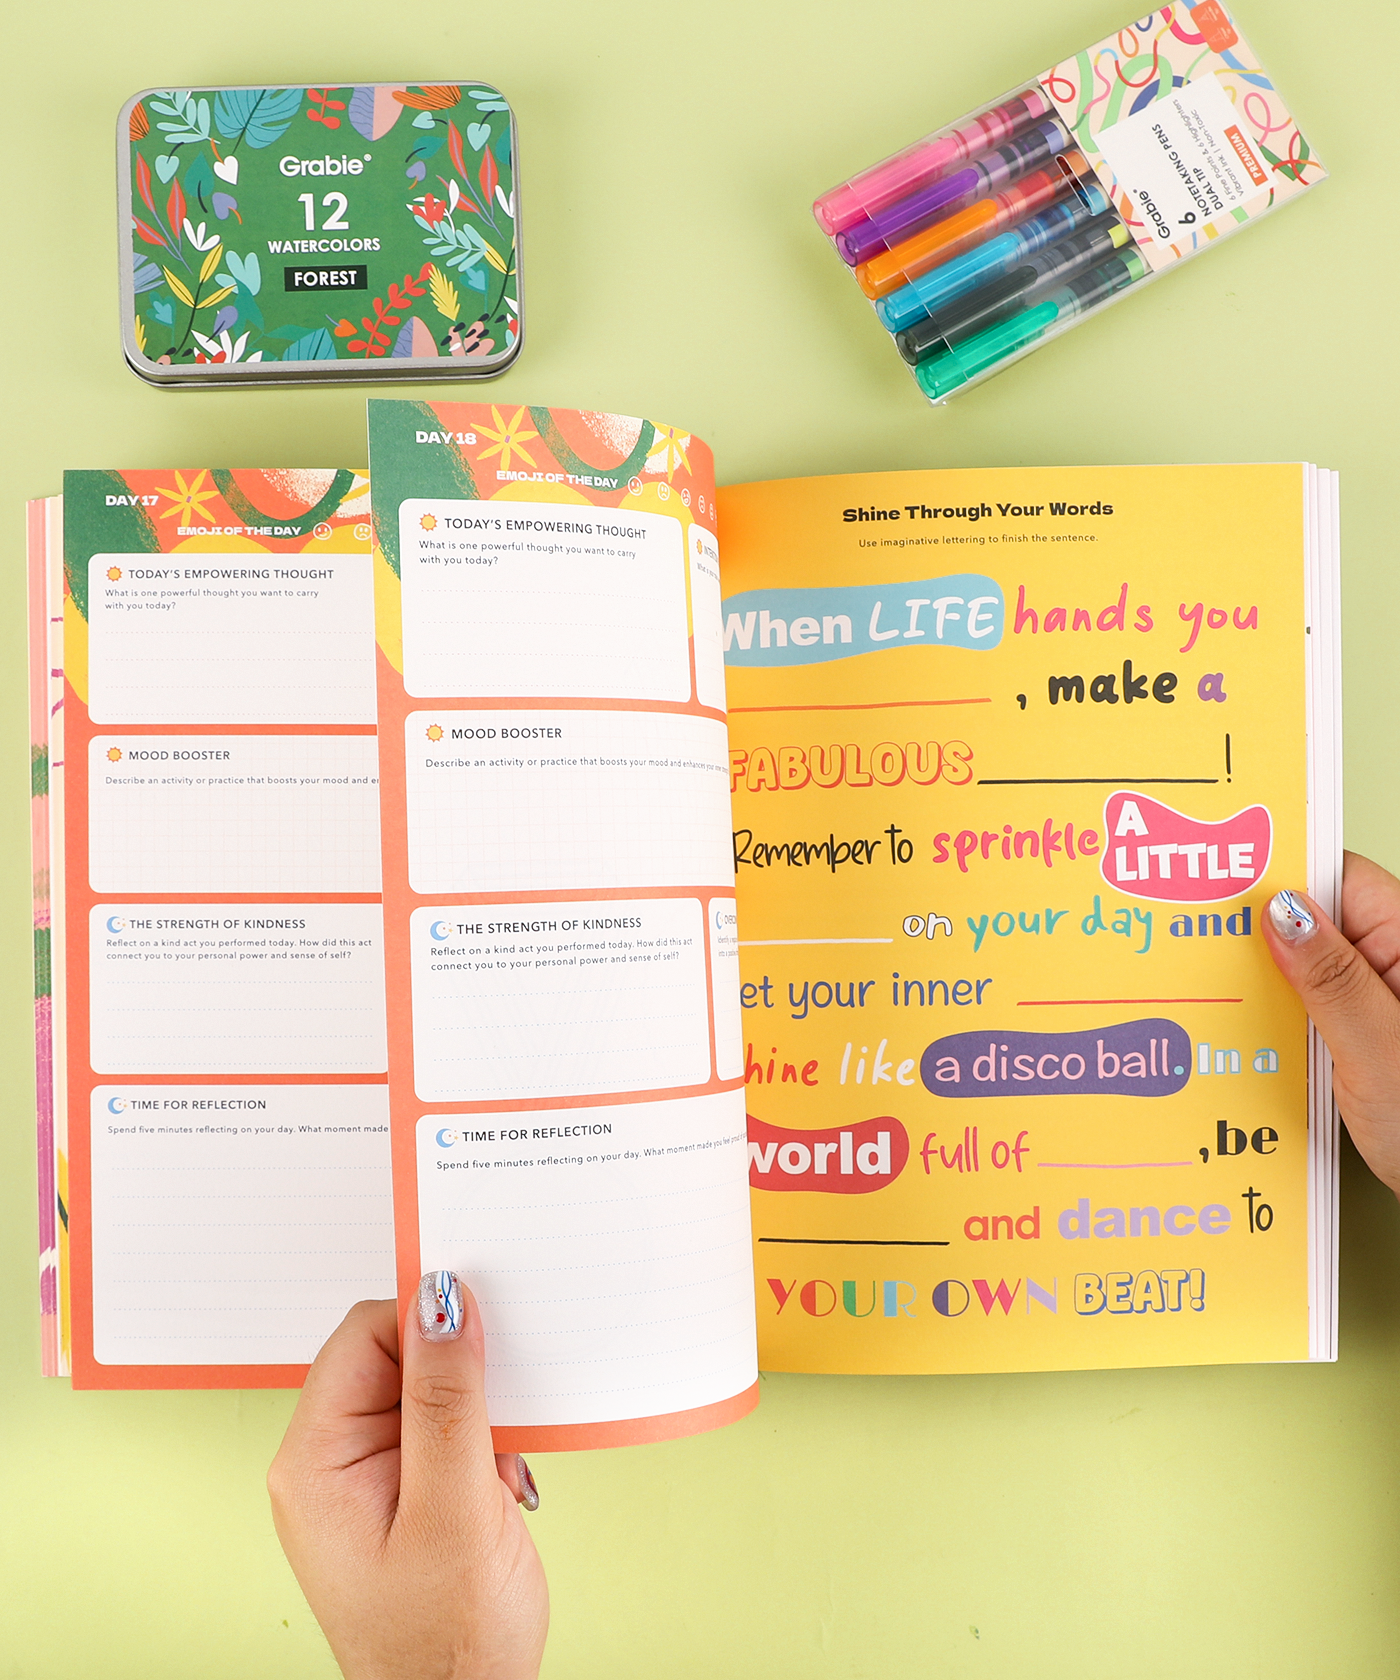 Grabie®
12
WATERCOLORS
FOREST
Grabie®
6
NOTETAKING PENS
DUAL TIP
6 Fine Points & 6 Highlighters
Vibrant Ink | Non-Toxic
PREMIUM
DAY 17
EMOJI OF THE DAY
TODAY'S EMPOWERING THOUGHT
What is one powerful thought you want to carry
with you today?
MOOD BOOSTER
Describe an activity or practice that boosts your mood and
THE STRENGTH OF KINDNESS
Reflect on a kind act you performed today. How did this act
connect you to your personal power and sense of self?
TIME FOR REFLECTION
Spend five minutes reflecting on your day. What moment made
DAY 18
EMOJI OF THE DAY
TODAY'S EMPOWERING THOUGHT
What is one powerful thought you want to carry
with you today?
MOOD BOOSTER
Describe an activity or practice that boosts your mood and enhances your
THE STRENGTH OF KINDNESS
Reflect on a kind act you performed today. How did this act
connect you to your personal power and sense of self?
TIME FOR REFLECTION
Spend five minutes reflecting on your day. What moment made you feel
Shine Through Your Words
Use imaginative lettering to finish the sentence.
When LIFE hands you
, make a
FABULOUS !
Remember to sprinkle A LITTLE
on your day and
et your inner
hine like a disco ball. In a
world full of , be
and dance to
YOUR OWN BEAT!